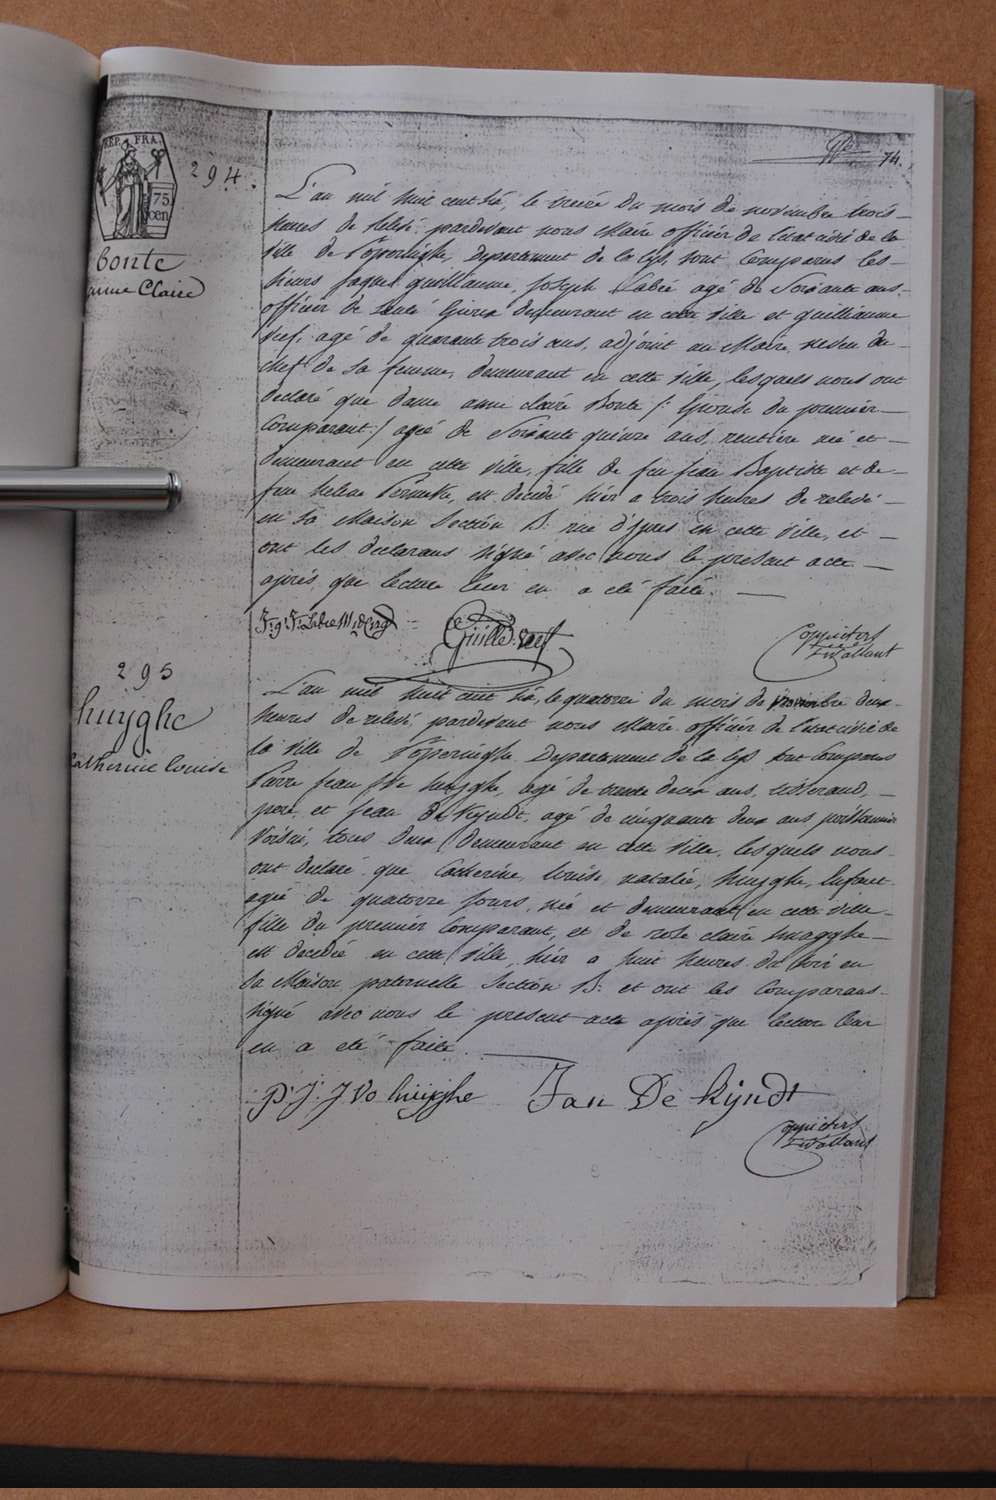 REP. FRA.
75 cen
74.
294.
bonte
anne Claire
L'an mil huit cent six, le treize du mois de novembre trois
heures de relevé, pardevant nous Maire officier de l'etat civil de la
ville de Poperinghe, Departement de la Lys, sont Comparus les
sieurs Jaque guilliaume, Joseph Labié agé de Soixante ans,
officier de santé demeurant en cette ville et guilliaume
agé de quarante trois ans, adjoint au Maire, neveu du
chef de sa femme, demeurant en cette ville, lesquels nous ont
declaré que dame anne claire Bonte /: Epouse du premier
Comparant :/ agée de Soixante quinze ans, rentiere née et
demeurant en cette ville, fille de feu jean Baptiste et de
feue helene est decedé hier a trois heures de relevé
en sa Maison Section B: rue d'Ypres en cette ville, et
ont les declarans signé avec nous le present acte
après que lecture leur en a été faite.
295
huyghe
Catherine louise
L'an mil huit cent six, le quatorze du mois de novembre deux
heures de relevé pardevant nous Maire officier de l'etat civil de
la ville de Poperinghe Departement de la Lys sont Comparus
Pierre jean huyghe, agé de trente deux ans, tisserand,
pere, et jean De Kyndt, agé de cinquante deux ans
Voisin, tous deux demeurant en cette ville, lesquels nous
ont declaré que Catherine, louise, natalie, huyghe, Enfant
agée de quatorze jours, née et demeurant en cette ville
fille du premier Comparant, et de rose claire
est decedée en cette ville, hier a huit heures du soir en
la Maison paternelle Section B: et ont les Comparans
signé avec nous le present acte après que lecture leur
en a été faite.
P: J: J Vo huyghe Jan De Kyndt